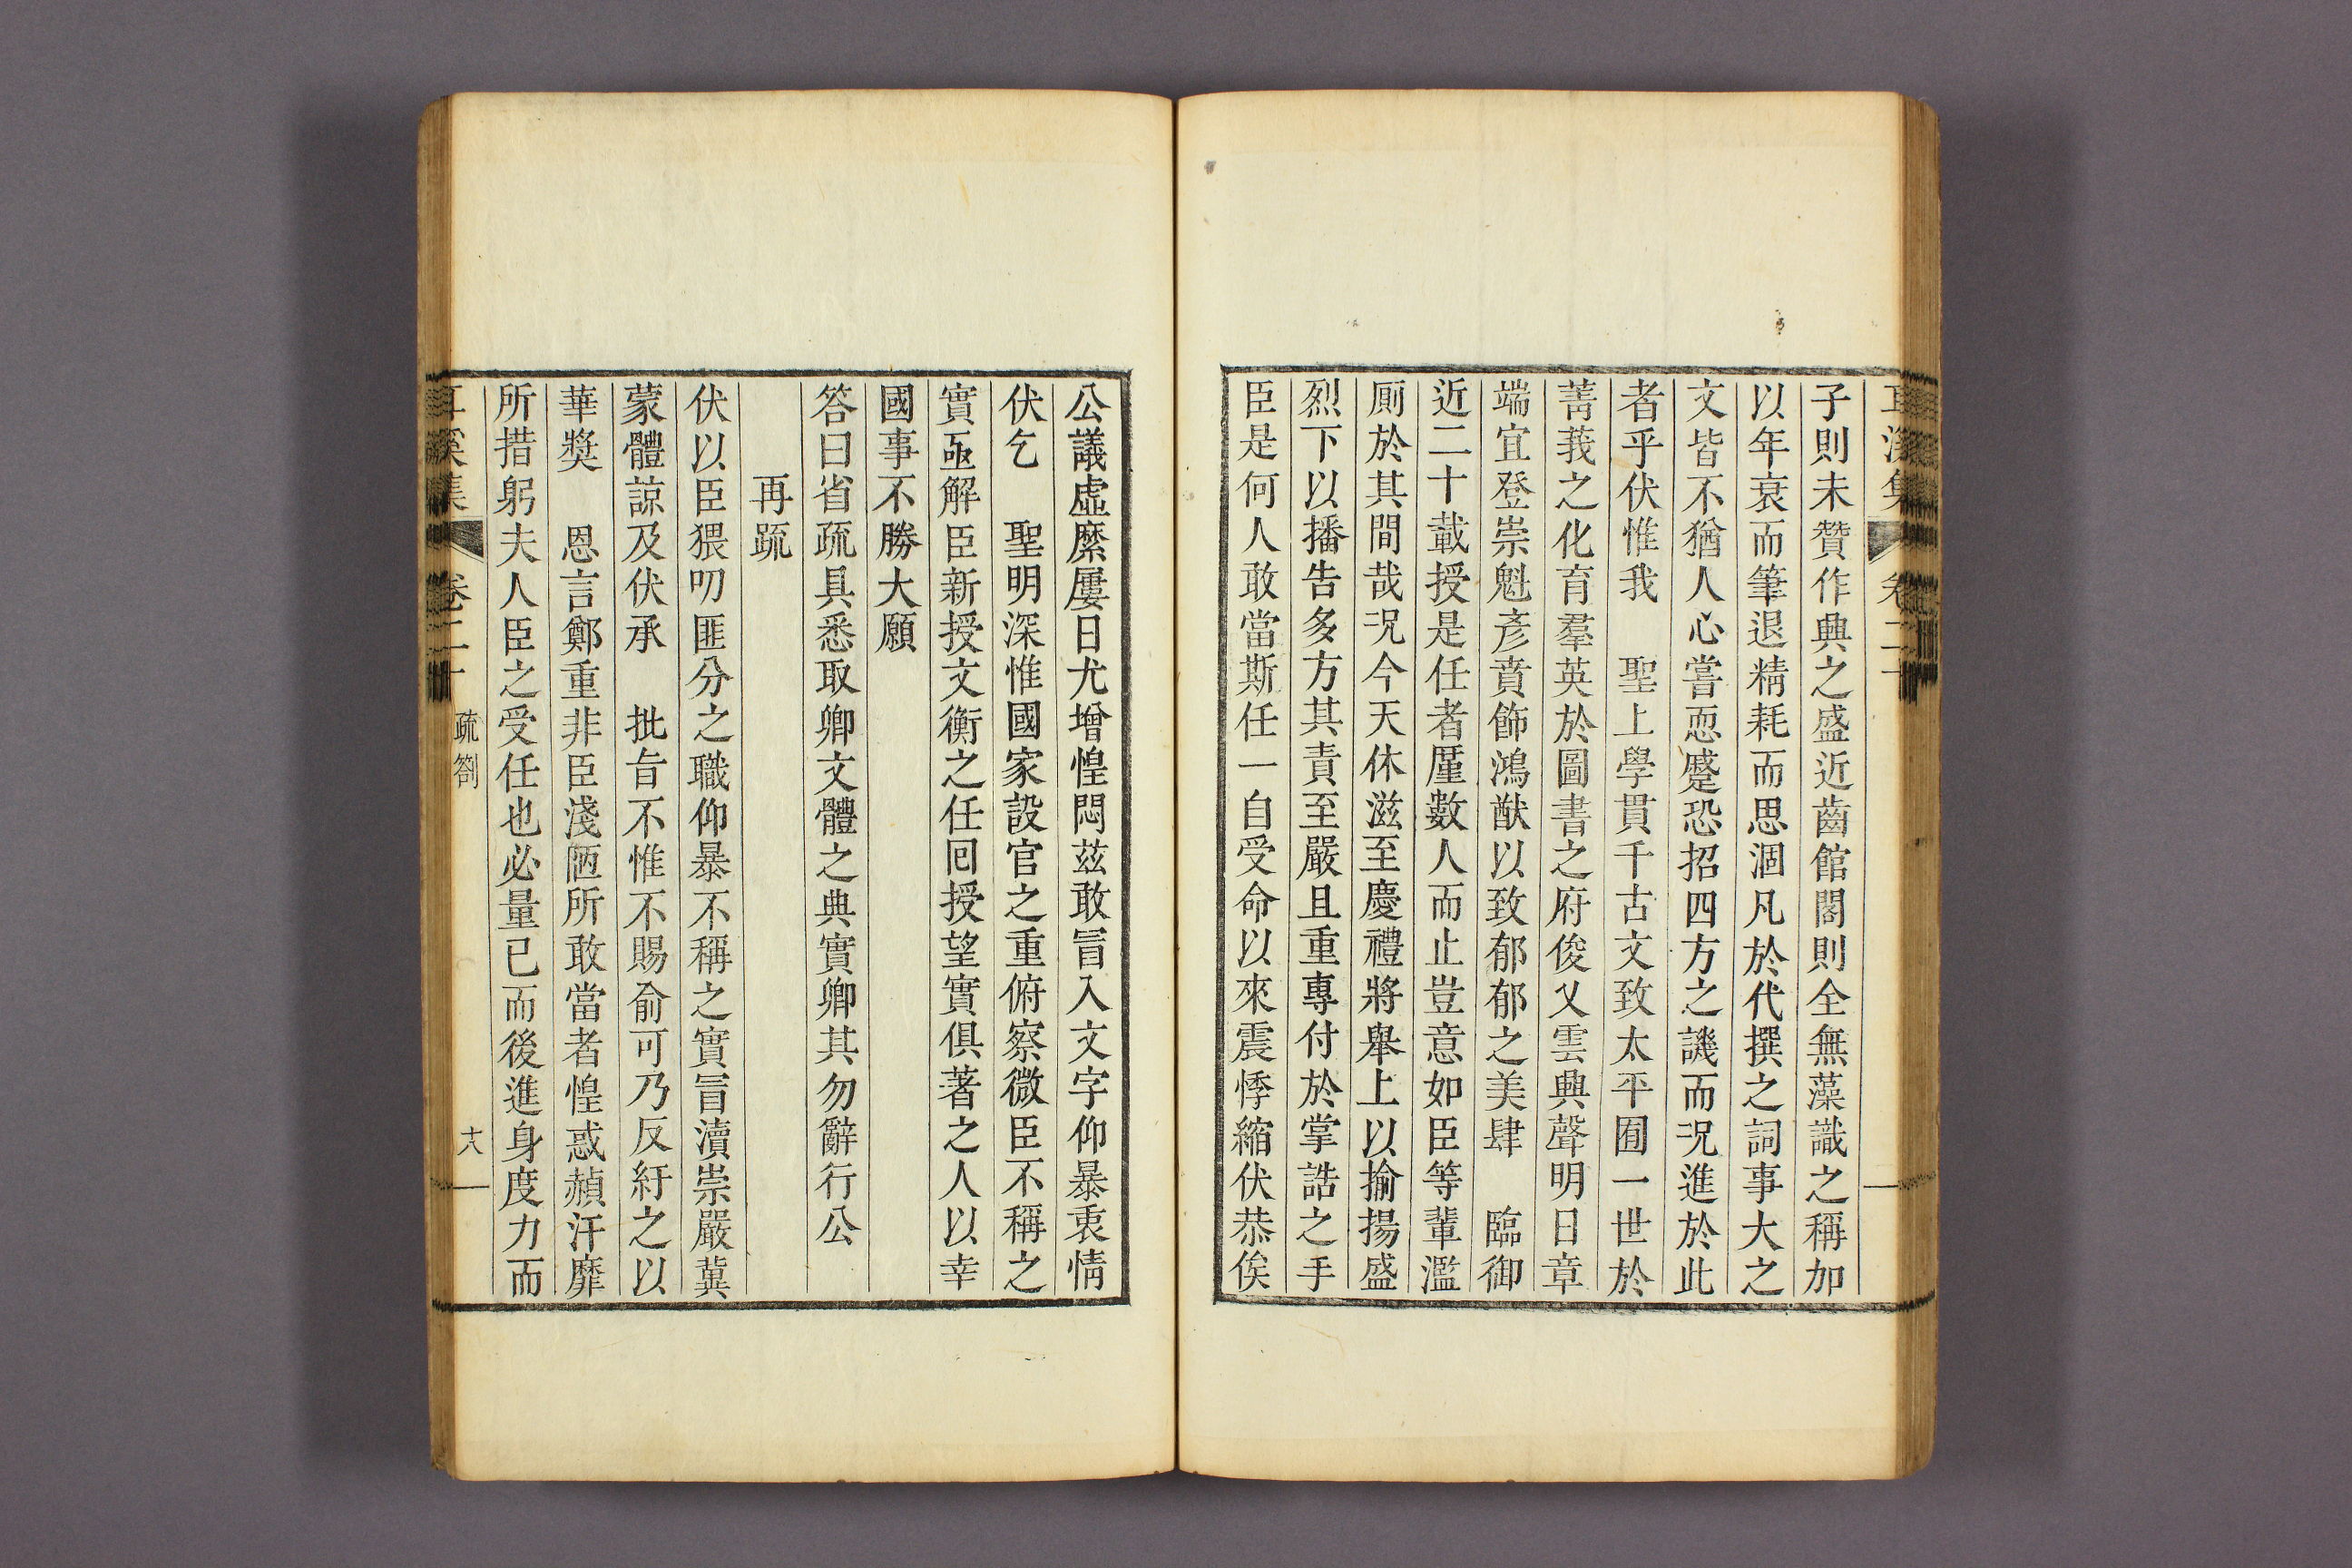 耳溪集 卷二十
子則未贊作典之盛近齒館閣則全無藻識之稱加
以年衰而筆退精耗而思涸凡於代撰之詞事大之
文皆不猶人心嘗恧蹙恐招四方之譏而况進於此
者乎伏惟我 聖上學貫千古文致太平囿一世於
菁莪之化育羣英於圖書之府俊乂雲興聲明日章
端宜登崇魁彥賁飾鴻猷以致郁郁之美肆 臨御
近二十載授是任者厪數人而止豈意如臣等輩濫
厠於其間哉况今天休滋至慶禮將舉上以揄揚盛
烈下以播告多方其責至嚴且重專付於掌誥之手
臣是何人敢當斯任一自受命以來震悸縮伏恭俟
公議虛縻屢日尤增惶悶玆敢冒入文字仰暴衷情
伏乞 聖明深惟國家設官之重俯察微臣不稱之
實亟解臣新授文衡之任回授望實俱著之人以幸
國事不勝大願
答曰省疏具悉取卿文體之典實卿其勿辭行公
再疏
伏以臣猥叨匪分之職仰暴不稱之實冒瀆崇嚴冀
蒙體諒及伏承 批旨不惟不賜俞可乃反紆之以
華奬 恩言鄭重非臣淺陋所敢當者惶惑赬汗靡
所措躬夫人臣之受任也必量已而後進身度力而
耳溪集 卷二十 疏箚 十八